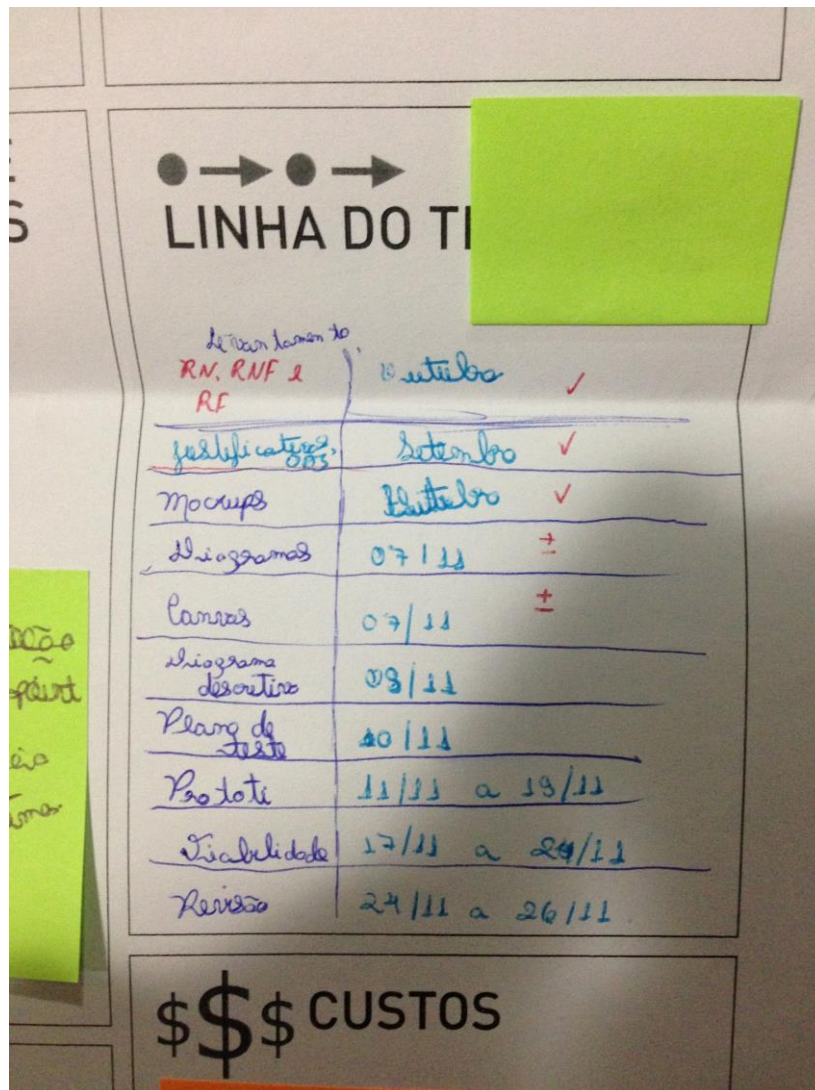 S
LINHA DO T
Levantamento,
RN, RNF e Outubro ✓
RF
justificativas, Setembro ✓
ODS
Mockups Outubro ✓
Diagramas 07/11 ±
Canvas 07/11 ±
Diagrama 08/11
descritivo
Plano de 10/11
teste
Prototi 11/11 a 19/11
Viabilidade 17/11 a 24/11
Revisão 24/11 a 26/11
$$$ CUSTOS